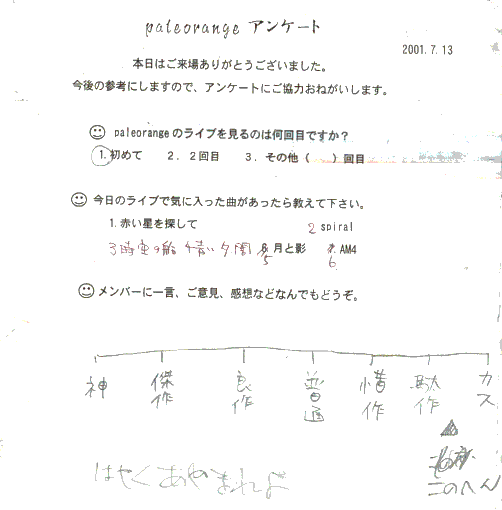 paleorange アンケート
2001.7.13
本日はご来場ありがとうございました。
今後の参考にしますので、アンケートにご協力おねがいします。
paleorangeのライブを見るのは何回目ですか？
1.初めて 2.2回目 3.その他（ ）回目
今日のライブで気に入った曲があったら教えて下さい。
1.赤い星を探して 2 spiral
3時空の船 4 青い夕闇 5 月と影 6. AM4
メンバーに一言、ご意見、感想などなんでもどうぞ。
神 傑作 良作 普通 惜作 駄作 カス
▲
このへん
はやくあやまれよ